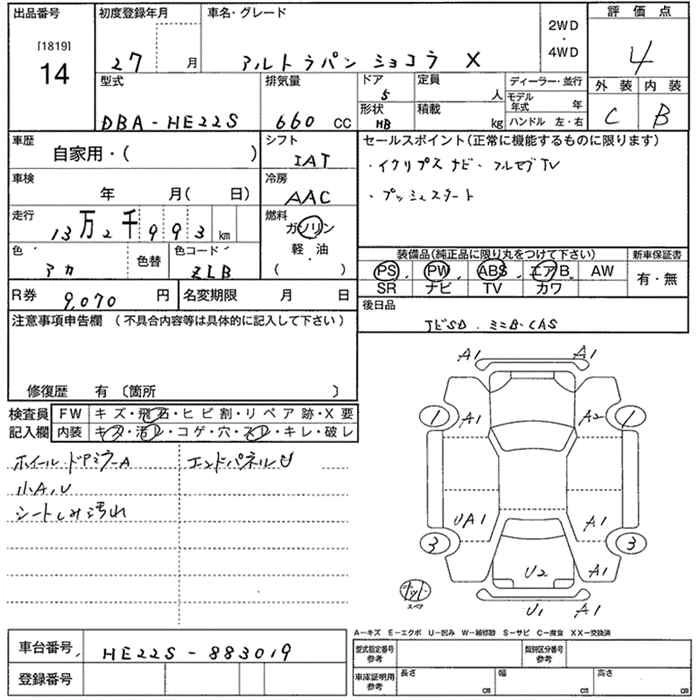 出品番号 初度登録年月 車名・グレード 2WD・4WD 評価点
[1819]
14 27 月 アルトラパン ショコラ X 4
型式 排気量 ドア 定員 ディーラー・並行 外装 内装
DBA-HE22S 660 CC 5 人 モデル年式 年 C B
形状 積載
HB kg ハンドル 左・右
車歴 シフト セールスポイント(正常に機能するものに限ります)
自家用・( ) IAT ・イクリプスナビ・フルセグTV
車検 冷房 ・プッシュスタート
年 月( 日) AAC
走行 燃料
13万2千993km ガソリン
色 色替 色コード 軽・油
アカ ZLB ・
( )
装備品(純正品に限り丸をつけて下さい) 新車保証書
PS PW ABS エアB AW 有・無
SR ナビ TV カワ
R券 9,070 円 名変期限 月 日
後日品
注意事項申告欄 (不具合内容等は具体的に記入して下さい)
ナビSD.ミニB・CAS
修復歴 有 〔箇所 〕
検査員 FW キズ・飛石・ヒビ割・リペア跡・X要
記入欄 内装 キズ・汚レ・コゲ・穴・スレ・キレ・破レ
ホイール.ドアミラーA エンドパネルU
小A.U
シートしみ汚れ
A1 A1
1 A1 A2 1
UA1 A1
3 3
U2 A1
U1 A1
スペア
A-キズ E-エクボ U-凹み W-補修跡 S-サビ C-腐食 XX-交換済
車台番号 HE22S-883019
型式指定番号 参考 類別区分番号 参考
登録番号
車庫証明用 参考 長さ cm 幅 cm 高さ cm